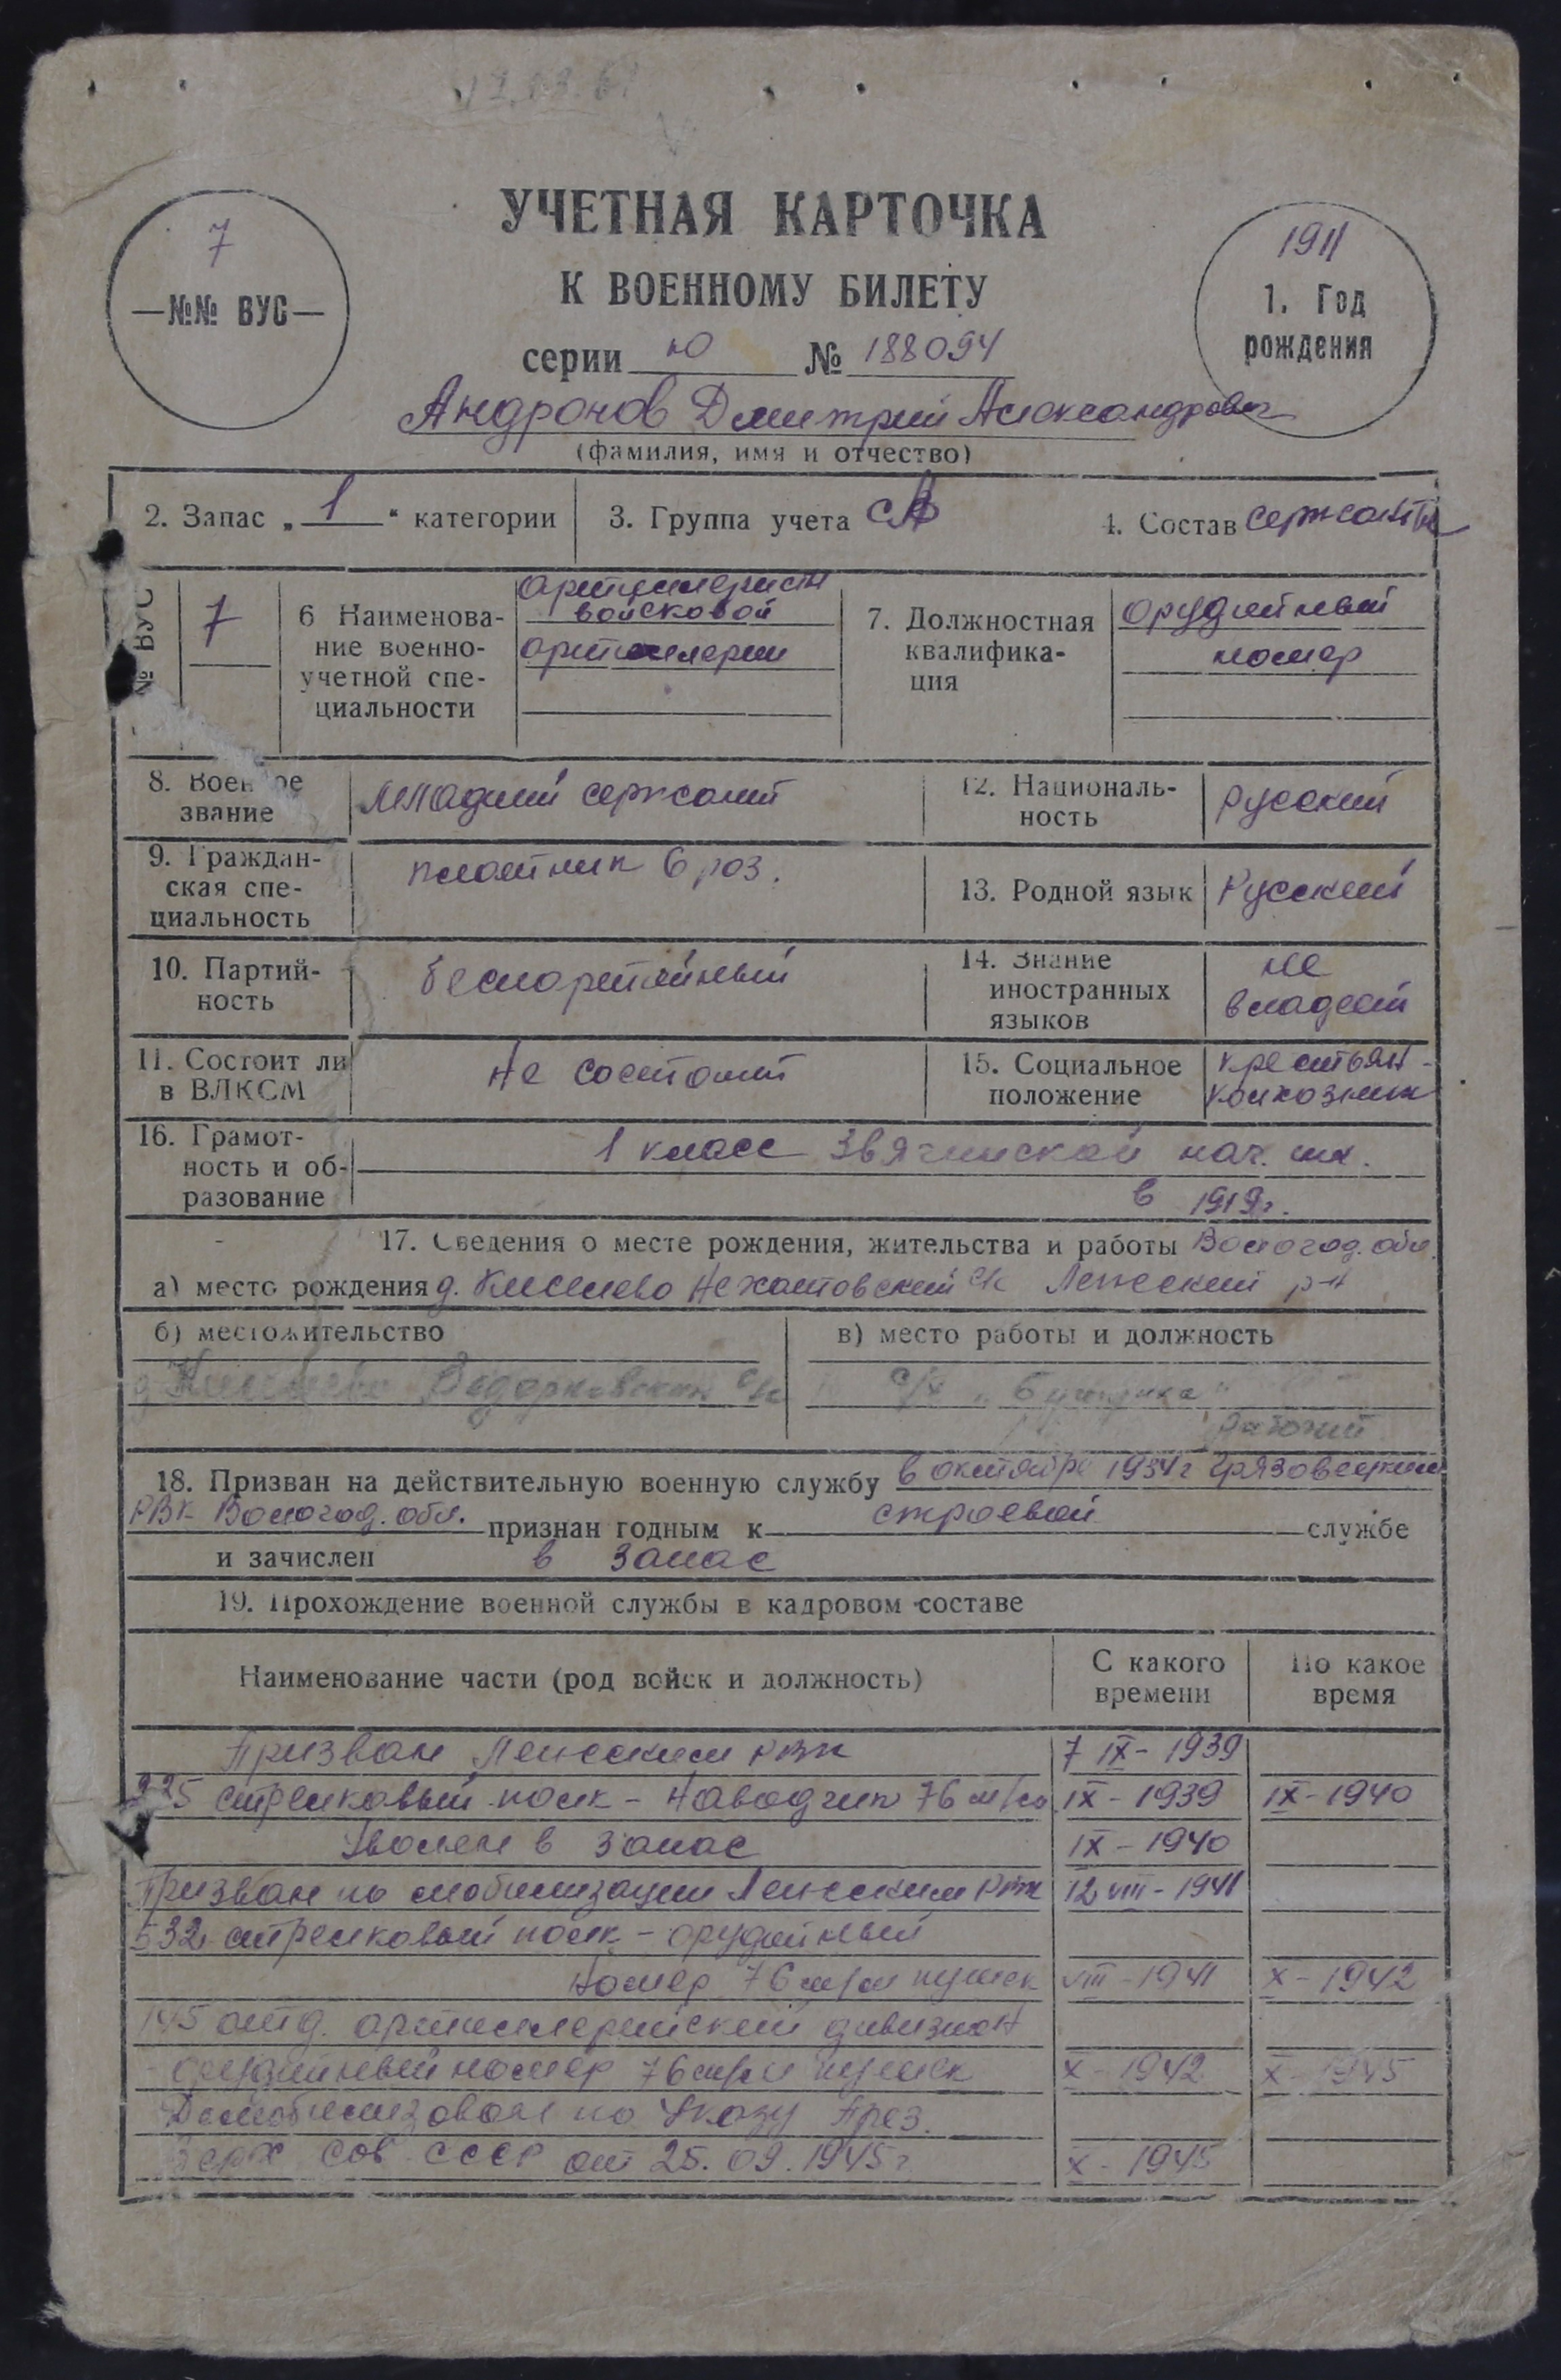 УЧЕТНАЯ КАРТОЧКА
К ВОЕННОМУ БИЛЕТУ
серии Ю № 188094
7
—№№ ВУС—
1911
1. Год
рождения
Андронов Дмитрий Александрович
(фамилия, имя и отчество)
2. Запас „1“ категории
3. Группа учета СА
4. Состав сержанты
№ ВУС
7
6 Наименова-
ние военно-
учетной спе-
циальности
артиллерист
войсковой
артиллерии
7. Должностная
квалифика-
ция
орудийный
номер
8. Военное
звание
младший сержант
12. Националь-
ность
русский
9. Граждан-
ская спе-
циальность
плотник 6 раз.
13. Родной язык
Русский
10. Партий-
ность
беспартийный
14. Знание
иностранных
языков
не
владеет
11. Состоит ли
в ВЛКСМ
Не состоит
15. Социальное
положение
крестьян-
колхозник
16. Грамот-
ность и об-
разование
1 класс Звягинской нач. шк.
в 1919г.
17. Сведения о месте рождения, жительства и работы Вологод. обл.
а) место рождения д. Киселево Нехотовский с/с Лежский р-н
б) местожительство
д. Киселево с/с
в) место работы и должность
с/х
рабочий
18. Призван на действительную военную службу в октябре 1934г Грязовецким
РВК Вологод. обл. признан годным к строевой службе
и зачислен в запас
19. Прохождение военной службы в кадровом составе
Наименование части (род войск и должность)
С какого
времени
По какое
время
Призван Лежским РВК 7 IX- 1939
стрелковый полк - наводчик 76 м/м IX - 1939 IX - 1940
Уволен в запас IX - 1940
Призван по мобилизации Лежским РВК 12 VIII - 1941
532 стрелковый полк - орудийный
номер 76 м/м пушек VIII - 1941 X - 1942
145 отд. артиллерийский дивизион
орудийный номер 76 м/м пушек X - 1942 X - 1945
Демобилизован по Указу През.
Верх Сов СССР от 25.09.1945г X - 1945